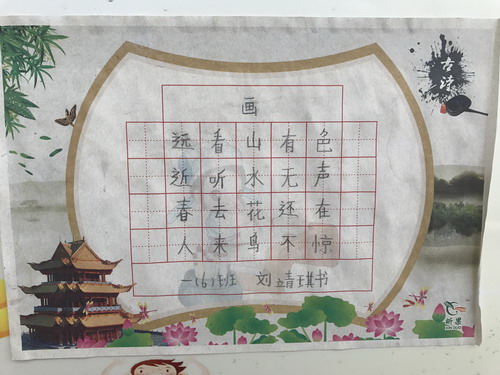 古诗
画
远看山有色
近听水无声
春去花还在
人来鸟不惊
一(6)班 刘靖琪书
昕果